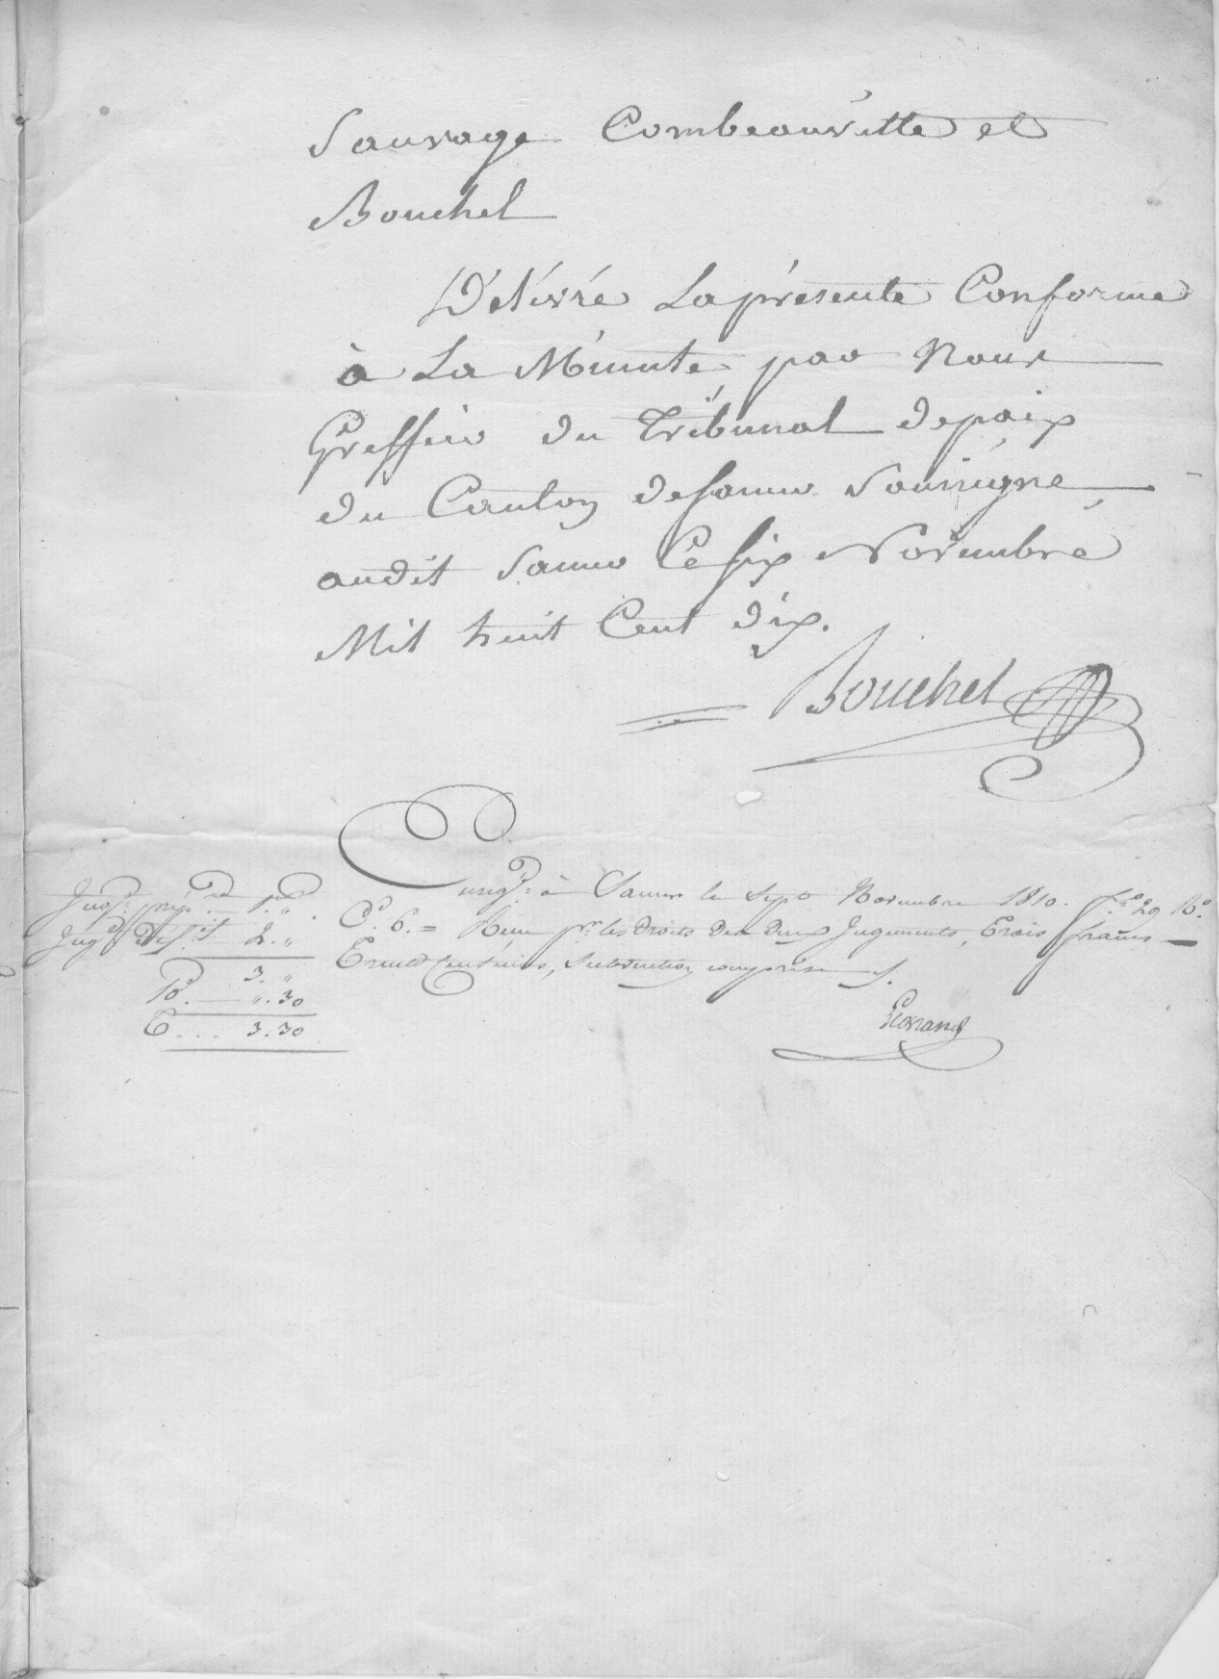 Sauvage Combeauvitte et
Bouchel
Délivré La présente Conforme
à La Minute par Nous
Greffier du Tribunal de paix
du Canton de Samer Soussigné
audit Samer Le Six Novembre
Mil huit Cent dix.
Bouchel
Enregt. à Samer le Sept Novembre 1810. fo. 29 Ro.
Co. 6. = Reçu pr. les droits des deux Jugements, Trois francs
Trente Centimes, Subvention comprise
Jugt. prép. 1. "
Jugt. déft. 2. "
3. "
10e. ". 30
T... 3.30